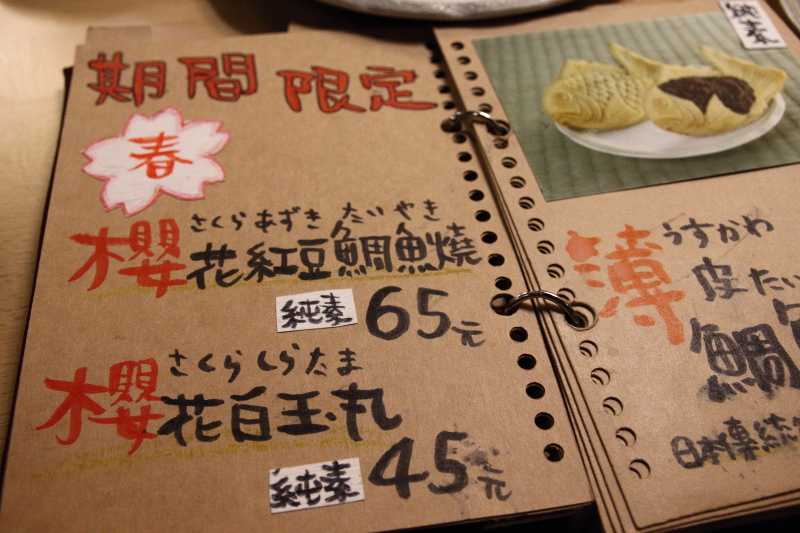 期間限定
春
さくらあずき たいやき
櫻花紅豆鯛魚燒
純素 65元
さくらしらたま
櫻花白玉丸
純素 45元
純素
うすかわ
薄皮
たい
鯛
日本傳統